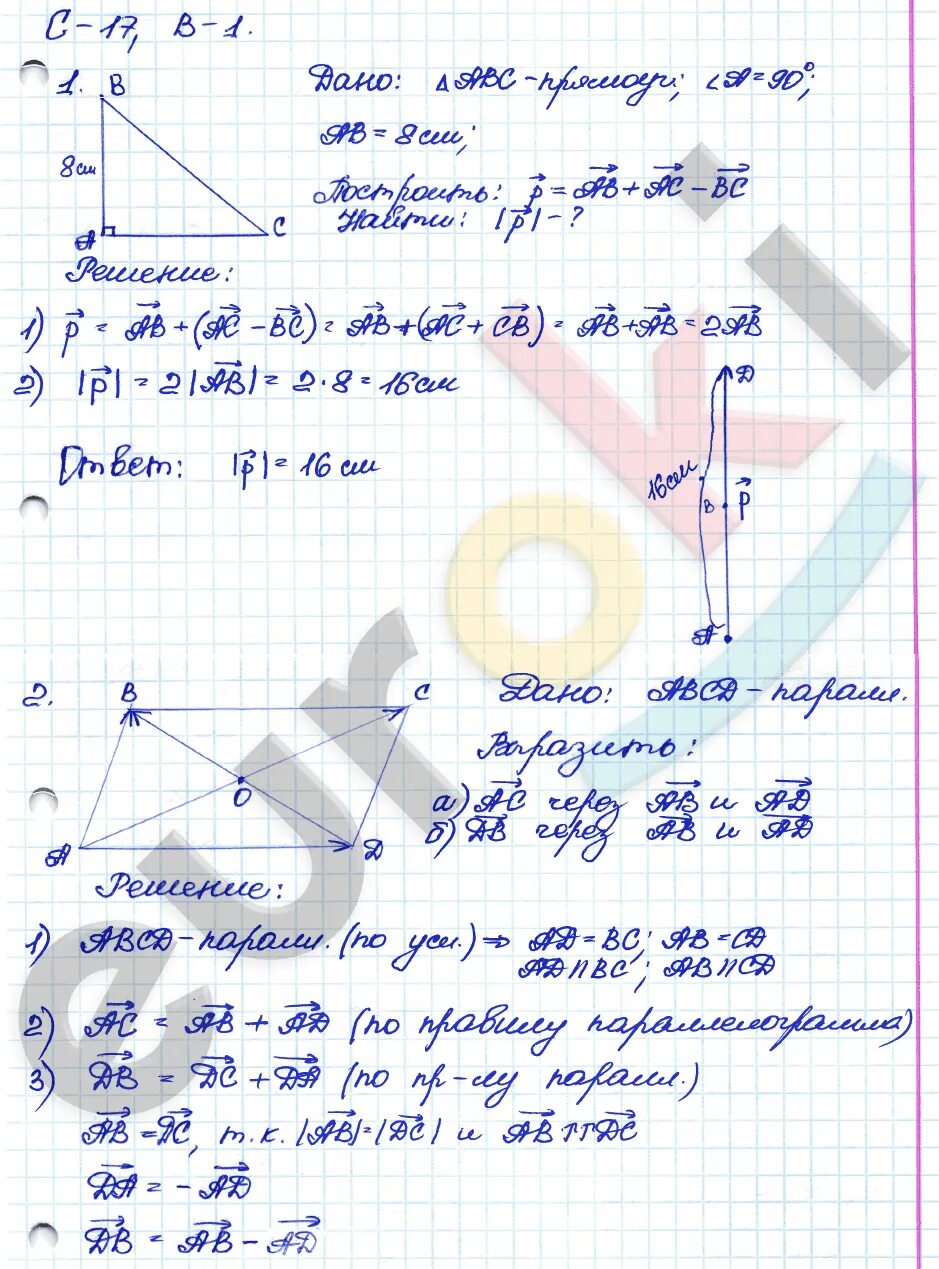 С-17, В-1.
1. B
8см
A
C
Дано: △ABC-прямоуг; ∠A=90°;
AB = 8см;
Построить: p⃗ = AB⃗ + AC⃗ − BC⃗
Найти: |p⃗| - ?
Решение:
1) p⃗ = AB⃗ + (AC⃗ − BC⃗) = AB⃗ + (AC⃗ + CB⃗) = AB⃗ + AB⃗ = 2AB⃗
2) |p⃗| = 2|AB⃗| = 2·8 = 16см
D
16см
B
p⃗
A
Ответ: |p⃗| = 16 см
2. B
C
O
A
D
Дано: ABCD-паралл.
Выразить:
а) AC⃗ через AB⃗ и AD⃗
б) DB⃗ через AB⃗ и AD⃗
Решение:
1) ABCD-паралл. (по усл.) ⇒ AD=BC; AB=CD
AD∩BC; AB∩CD
2) AC⃗ = AB⃗ + AD⃗ (по правилу параллелограмма)
3) DB⃗ = DC⃗ + DA⃗ (по пр-лу паралл.)
AB⃗ = DC⃗, т.к. |AB⃗|=|DC⃗| и AB⃗↑↑DC⃗
DA⃗ = − AD⃗
DB⃗ = AB⃗ − AD⃗
euroki